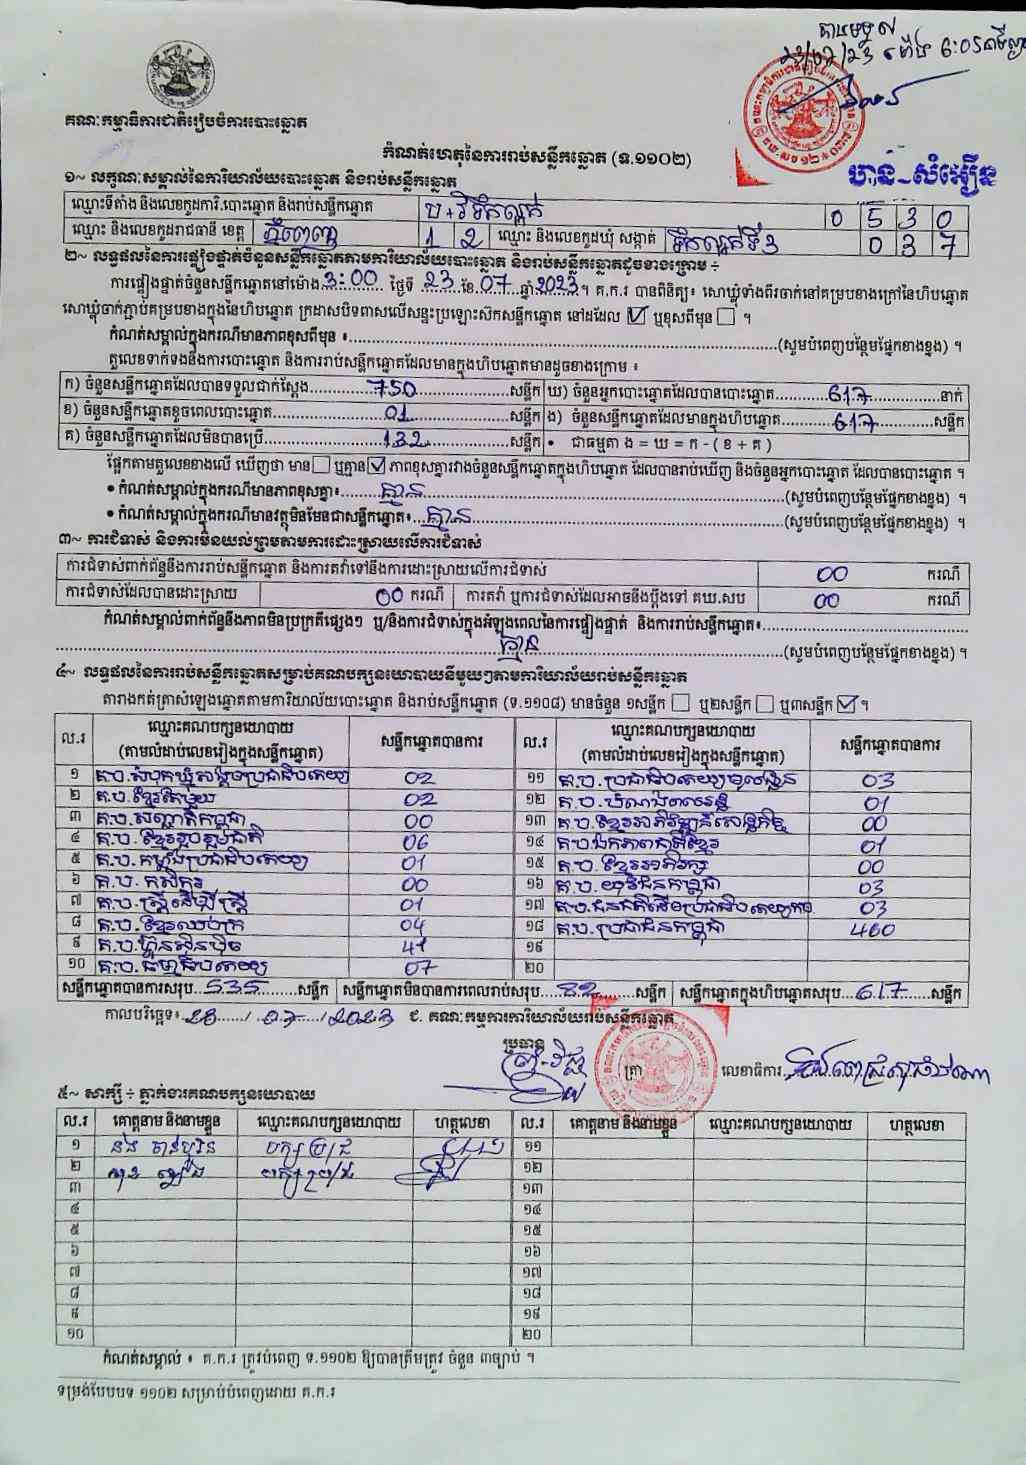 គណៈកម្មាធិការជាតិរៀបចំការបោះឆ្នោត
កំណត់ហេតុនៃការរាប់សន្លឹកឆ្នោត (ទ.១១០២)
ហាន-សំអឿន
១~ លក្ខណៈសម្គាល់នៃការិយាល័យបោះឆ្នោត និងរាប់សន្លឹកឆ្នោត
ឈ្មោះទីតាំង និងលេខកូដការិ.បោះឆ្នោត និងរាប់សន្លឹកឆ្នោត 0 5 3 0
ឈ្មោះ និងលេខកូដរាជធានី ខេត្ត ភ្នំពេញ 1 2 ឈ្មោះ និងលេខកូដឃុំ សង្កាត់ ទឹកល្អក់ទី3 0 3 7
២~ លទ្ធផលនៃការផ្ទៀងផ្ទាត់ចំនួនសន្លឹកឆ្នោតតាមការិយាល័យបោះឆ្នោត និងរាប់សន្លឹកឆ្នោតដូចខាងក្រោម ÷
ការផ្ទៀងផ្ទាត់ចំនួនសន្លឹកឆ្នោតនៅម៉ោង 3:00 ថ្ងៃទី 23 ខែ 07 ឆ្នាំ 2023 ។ គ.ក.រ បានពិនិត្យ៖ សោឃ្លុំទាំងពីរចាក់នៅគម្របខាងក្រៅនៃហិបឆ្នោត
សោឃ្លុំចាក់ភ្ជាប់គម្របខាងក្នុងនៃហិបឆ្នោត ក្រដាសបិទពាសលើសន្ទះប្រឡោះសិកសន្លឹកឆ្នោត នៅដដែល ☑ ឬខុសពីមុន ☐ ។
កំណត់សម្គាល់ក្នុងករណីមានភាពខុសពីមុន ៖ (សូមបំពេញបន្ថែមផ្នែកខាងខ្នង) ។
តួលេខទាក់ទងនឹងការបោះឆ្នោត និងការរាប់សន្លឹកឆ្នោតដែលមានក្នុងហិបឆ្នោតមានដូចខាងក្រោម ៖
ក) ចំនួនសន្លឹកឆ្នោតដែលបានទទួលជាក់ស្តែង 750 សន្លឹក ឃ) ចំនួនអ្នកបោះឆ្នោតដែលបានបោះឆ្នោត 617 នាក់
ខ) ចំនួនសន្លឹកឆ្នោតខូចពេលបោះឆ្នោត 01 សន្លឹក ង) ចំនួនសន្លឹកឆ្នោតដែលមានក្នុងហិបឆ្នោត 617 សន្លឹក
គ) ចំនួនសន្លឹកឆ្នោតដែលមិនបានប្រើ 132 សន្លឹក • ជាធម្មតា ង = ឃ = ក - ( ខ + គ )
ផ្អែកតាមតួលេខខាងលើ ឃើញថា មាន ☐ ឬគ្មាន ☑ ភាពខុសគ្នារវាងចំនួនសន្លឹកឆ្នោតក្នុងហិបឆ្នោត ដែលបានរាប់ឃើញ និងចំនួនអ្នកបោះឆ្នោត ដែលបានបោះឆ្នោត ។
• កំណត់សម្គាល់ក្នុងករណីមានភាពខុសគ្នា៖ គ្មាន (សូមបំពេញបន្ថែមផ្នែកខាងខ្នង) ។
• កំណត់សម្គាល់ក្នុងករណីមានវត្ថុមិនមែនជាសន្លឹកឆ្នោត៖ គ្មាន (សូមបំពេញបន្ថែមផ្នែកខាងខ្នង) ។
៣~ ការជំទាស់ និងការមិនយល់ព្រមតាមការដោះស្រាយលើការជំទាស់
ការជំទាស់ពាក់ព័ន្ធនឹងការរាប់សន្លឹកឆ្នោត និងការតវ៉ាទៅនឹងការដោះស្រាយលើការជំទាស់ 00 ករណី
ការជំទាស់ដែលបានដោះស្រាយ 00 ករណី ការតវ៉ា ឬការជំទាស់ដែលអាចនឹងប្តឹងទៅ គឃ.សប 00 ករណី
កំណត់សម្គាល់ពាក់ព័ន្ធនឹងភាពមិនប្រក្រតីផ្សេងៗ ឬ/និងការជំទាស់ក្នុងអំឡុងពេលនៃការផ្ទៀងផ្ទាត់ និងការរាប់សន្លឹកឆ្នោត៖
គ្មាន (សូមបំពេញបន្ថែមផ្នែកខាងខ្នង) ។
៤~ លទ្ធផលនៃការរាប់សន្លឹកឆ្នោតសម្រាប់គណបក្សនយោបាយនីមួយៗតាមការិយាល័យរាប់សន្លឹកឆ្នោត
តារាងកត់ត្រាសំឡេងឆ្នោតតាមការិយាល័យបោះឆ្នោត និងរាប់សន្លឹកឆ្នោត (ទ.១១០៨) មានចំនួន ១សន្លឹក ☐ ឬ២សន្លឹក ☐ ឬ៣សន្លឹក ☑ ។
ល.រ ឈ្មោះគណបក្សនយោបាយ (តាមលំដាប់លេខរៀងក្នុងសន្លឹកឆ្នោត) សន្លឹកឆ្នោតបានការ ល.រ ឈ្មោះគណបក្សនយោបាយ (តាមលំដាប់លេខរៀងក្នុងសន្លឹកឆ្នោត) សន្លឹកឆ្នោតបានការ
១ គ.ប.សំបុកឃ្មុំសង្គមប្រជាធិបតេយ្យ 02 ១១ គ.ប.ប្រជាធិបតេយ្យមូលដ្ឋាន 03
២ គ.ប.ខ្មែរតែមួយ 02 ១២ គ.ប.បំណងពលរដ្ឋ 01
៣ គ.ប.សញ្ជាតិកម្ពុជា 00 ១៣ គ.ប.ខ្មែរអភិវឌ្ឍន៍សេដ្ឋកិច្ច 00
៤ គ.ប.ខ្មែររួបរួមជាតិ 06 ១៤ គ.ប.ឯកភាពជាតិខ្មែរ 01
៥ គ.ប.កម្លាំងប្រជាធិបតេយ្យ 01 ១៥ គ.ប.ខ្មែរអភិរក្ស 00
៦ គ.ប.កសិករ 00 ១៦ គ.ប.យុវជនកម្ពុជា 03
៧ គ.ប.ស្ត្រីដើម្បីស្ត្រី 01 ១៧ គ.ប.ជនជាតិដើមប្រជាធិបតេយ្យកម្ពុជា 03
៨ គ.ប.ខ្មែរឈប់ក្រ 04 ១៨ គ.ប.ប្រជាជនកម្ពុជា 460
៩ គ.ប.ហ្វ៊ុនស៊ិនប៉ិច 41 ១៩
១០ គ.ប.ធម្មាធិបតេយ្យ 07 ២០
សន្លឹកឆ្នោតបានការសរុប 535 សន្លឹក សន្លឹកឆ្នោតមិនបានការពេលរាប់សរុប 82 សន្លឹក សន្លឹកឆ្នោតក្នុងហិបឆ្នោតសរុប 617 សន្លឹក
កាលបរិច្ឆេទ៖ 23 / 07 / 2023 ជ. គណៈកម្មការការិយាល័យរាប់សន្លឹកឆ្នោត
ប្រធាន ត្រា លេខាធិការ
៥~ សាក្សី ÷ ភ្នាក់ងារគណបក្សនយោបាយ
ល.រ គោត្តនាម និងនាមខ្លួន ឈ្មោះគណបក្សនយោបាយ ហត្ថលេខា ល.រ គោត្តនាម និងនាមខ្លួន ឈ្មោះគណបក្សនយោបាយ ហត្ថលេខា
១ បក្សប្រ/ជ ១១
២ បក្សប្រ/ជ ១២
៣ ១៣
៤ ១៤
៥ ១៥
៦ ១៦
៧ ១៧
៨ ១៨
៩ ១៩
១០ ២០
កំណត់សម្គាល់ ៖ គ.ក.រ ត្រូវបំពេញ ទ.១១០២ ឱ្យបានត្រឹមត្រូវ ចំនួន ៣ច្បាប់ ។
ទម្រង់បែបបទ ១១០២ សម្រាប់បំពេញដោយ គ.ក.រ